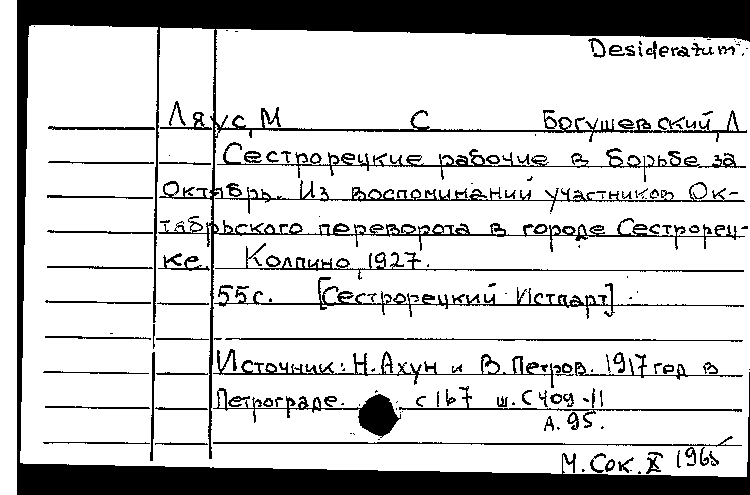 Desideratum.
Ляус, М С Богушевский, Л
Сестрорецкие рабочие в борьбе за
Октябрь. Из воспоминаний участников Ок-
тябрьского переворота в городе Сестрорец-
ке. Колпино, 1927.
55с. [Сестрорецкий Истпарт]
Источник: Н. Ахун и В. Петров. 1917 год в
Петрограде. с 167 ш. С 409-11
А. 95.
М. Сок. X 1965